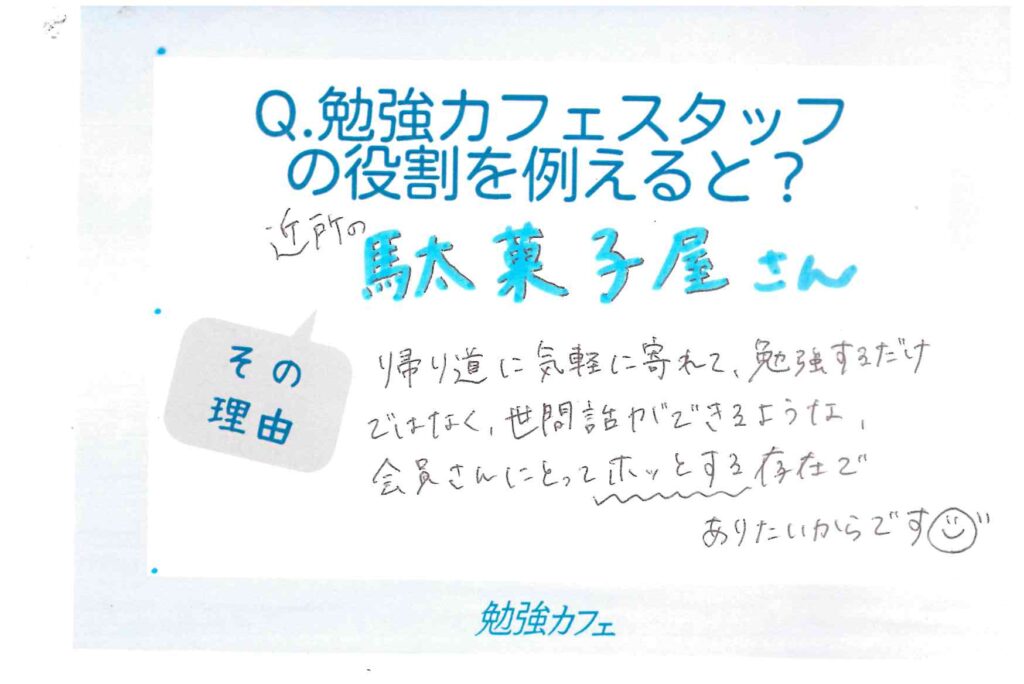 Q.勉強カフェスタッフ
の役割を例えると？
近所の
駄菓子屋さん
その
理由
帰り道に気軽に寄れて、勉強するだけ
ではなく、世間話ができるような、
会員さんにとってホッとする存在で
ありたいからです
勉強カフェ